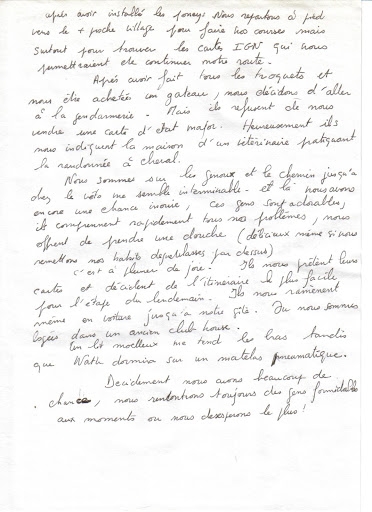 après avoir installé les poneys nous repartons à pied
vers le + proche village pour faire nos courses mais
surtout pour trouver les cartes IGN qui nous
permettraient de continuer notre route.
Après avoir fait tous les troquets et
nous être achetées un gateau, nous décidons d'aller
à la gendarmerie. Mais ils refusent de nous
vendre une carte d'état major. Heureusement ils
nous indiquent la maison d'un vétérinaire pratiquant
la randonnée à cheval.
Nous sommes sur les genoux et le chemin jusqu'à
chez le véto me semble interminable. et là nous avons
encore une chance inouie, ces gens sont adorables,
ils comprennent rapidement tous nos problèmes, nous
offrent de prendre une douche (délicieux même si nous
remettons nos habits dégueulasses par dessus)
c'est à pleurer de joie. Ils nous prêtent leurs
cartes et décident de l'itinéraire le plus facile
pour l'étape du lendemain. Ils nous ramènent
même en voiture jusqu'à notre gîte. Où nous sommes
logées dans un ancien club house.
Un lit moelleux me tend les bras tandis
que Nath dormira sur un matelas pneumatique.
Décidement nous avons beaucoup de
chance, nous rencontrons toujours des gens formidables
aux moments où nous desesperons le plus!